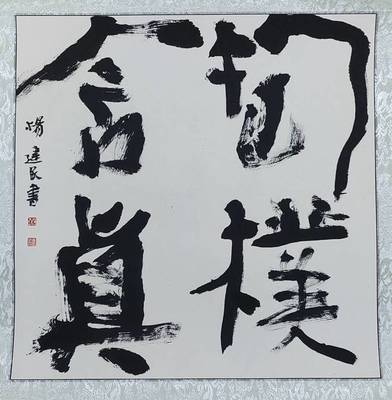 抱樸
含真
楊建民書